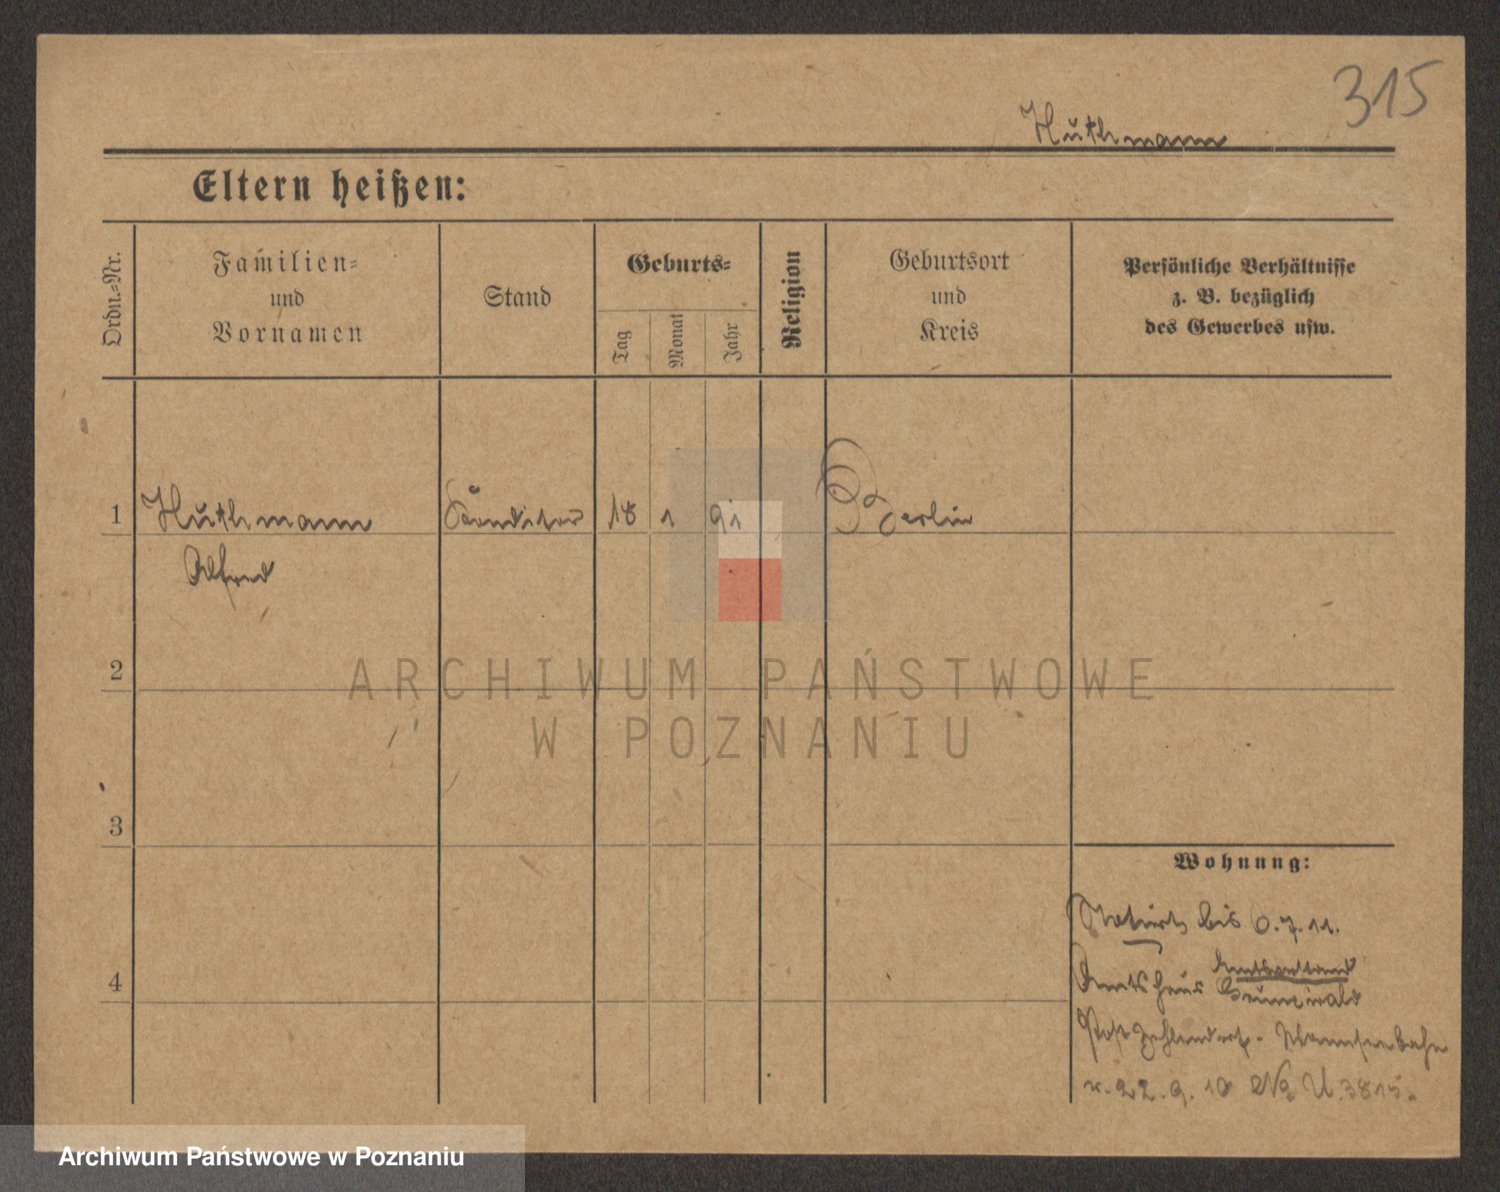 315
Huthmann
Eltern heißen:
Ordn.-Nr.
Familien-
und
Vornamen
Stand
Geburts-
Tag
Monat
Jahr
Religion
Geburtsort
und
Kreis
Persönliche Verhältnisse
z. B. bezüglich
des Gewerbes usw.
1 Huthmann Konditor 18 1 91 Berlin
Alfred
2
ARCHIWUM PAŃSTWOWE
W POZNANIU
3
Wohnung:
Notirt bis 6.7.11.
Amtsvorstand
4 Amtshaus Grunewald
Post Zehlendorf - Wannseebahn
v. 22.9.10 U. 3815.
Archiwum Państwowe w Poznaniu